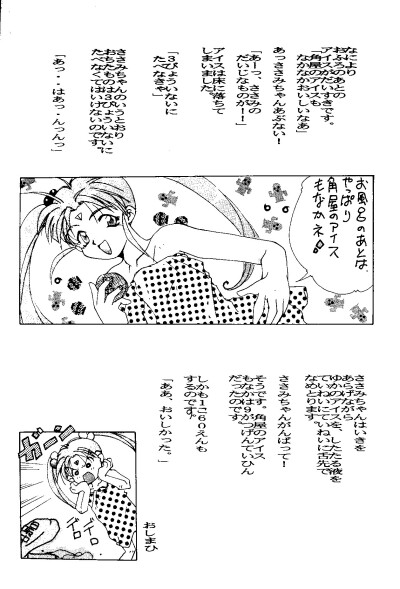 なにより
おふろのあとの
アイスがだいすきです。
「角屋のアイスも
なかなかおいしいなあ」
あっささみちゃんあぶない!
「あーっ、ささみの
だいじなものが!」
アイスは床に落ちて
しまいました。
「3びょういないに
たべなきゃ」
ささみちゃんのいうとおり
おちたものは3びょういないに
たべなくてはいけないのです。
「あっ・・はあっ・んっんっ」
お風呂のあとは
やっぱり
角屋のアイス
もなかネ
ささみちゃんはいきを
あらげながら
ゆかのアイスを、したたる液を
ていねいにていねいに舌先で
なめとります。
ささみちゃんがんばって!
そうです。角屋のアイス
もなかは9がつげんていひん
だったのです。
しかも1こ60えんも
するのです。
「ああ、おいしかった。」
おしまひ
ガーン
ドロ
ドロ